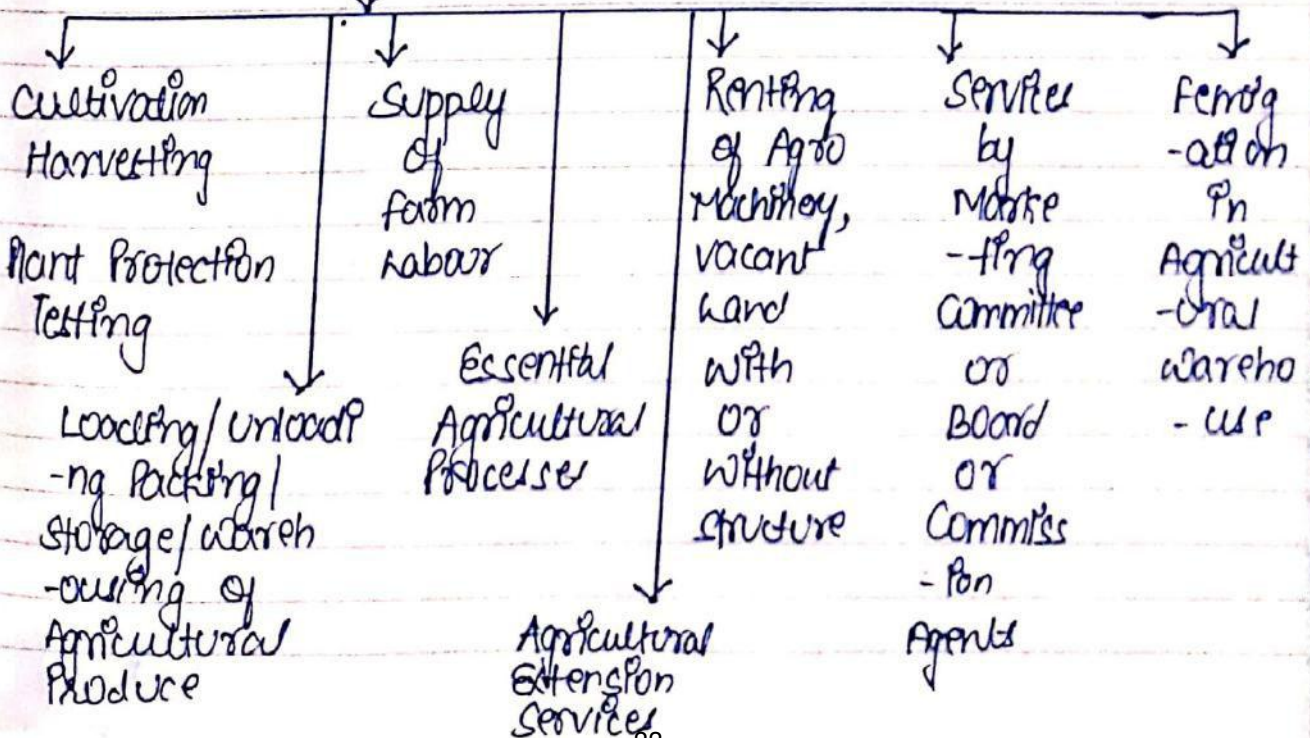 Cultivation
Harvesting
Plant Protection
Testing
Loading/unloadi
-ng Packing/
Storage/wareh
-ousing of
Agricultural
Produce
Supply
of
farm
Labour
Essential
Agricultural
Processes
Agricultural
Extension
Services
Renting
of Agro
Machinery,
vacant
Land
with
or
without
structure
Services
by
Marke
-ting
Committee
or
Board
or
Commiss
-ion
Agents
Fumig
-ation
in
Agricult
-ural
wareho
-use